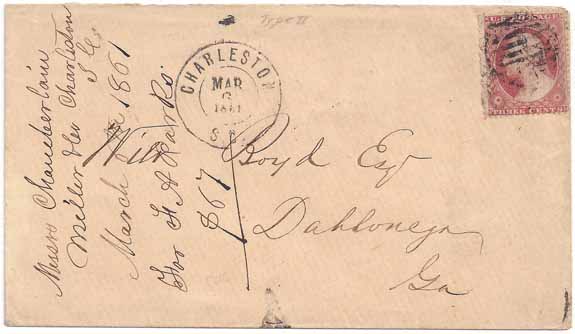 Type II
CHARLESTON
MAR
1861
S.C.
U.S. POSTAGE
THREE CENTS
Messrs Chamberlain
Miller & Co Charleston
S Ca
March 1861
For
$67
Will Boyd Esq
Dahlonega
Ga